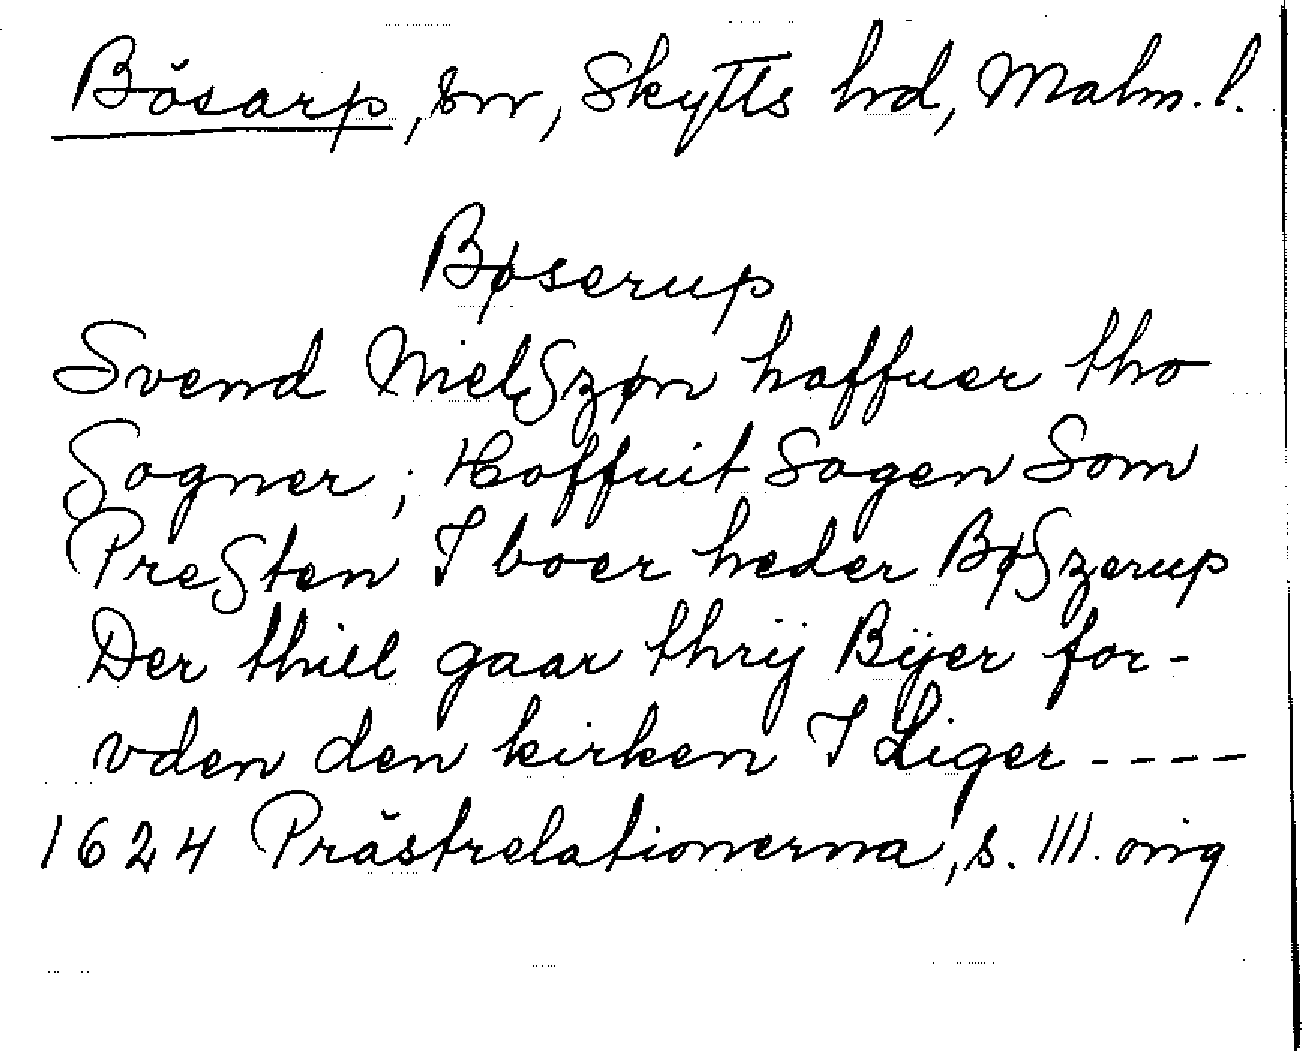 Bösarp, sn, Skytts hd, Malm. l.
Bøserup
Svend Nielszøn haffuer tho
Sogner; Hoffuit Sogen Som
Presten I boer heder Bøszerup
Der thill gaar thrÿ Bÿer for-
vden den kirken I liger ----
1624 Prästrelationerna, s. 111. orig